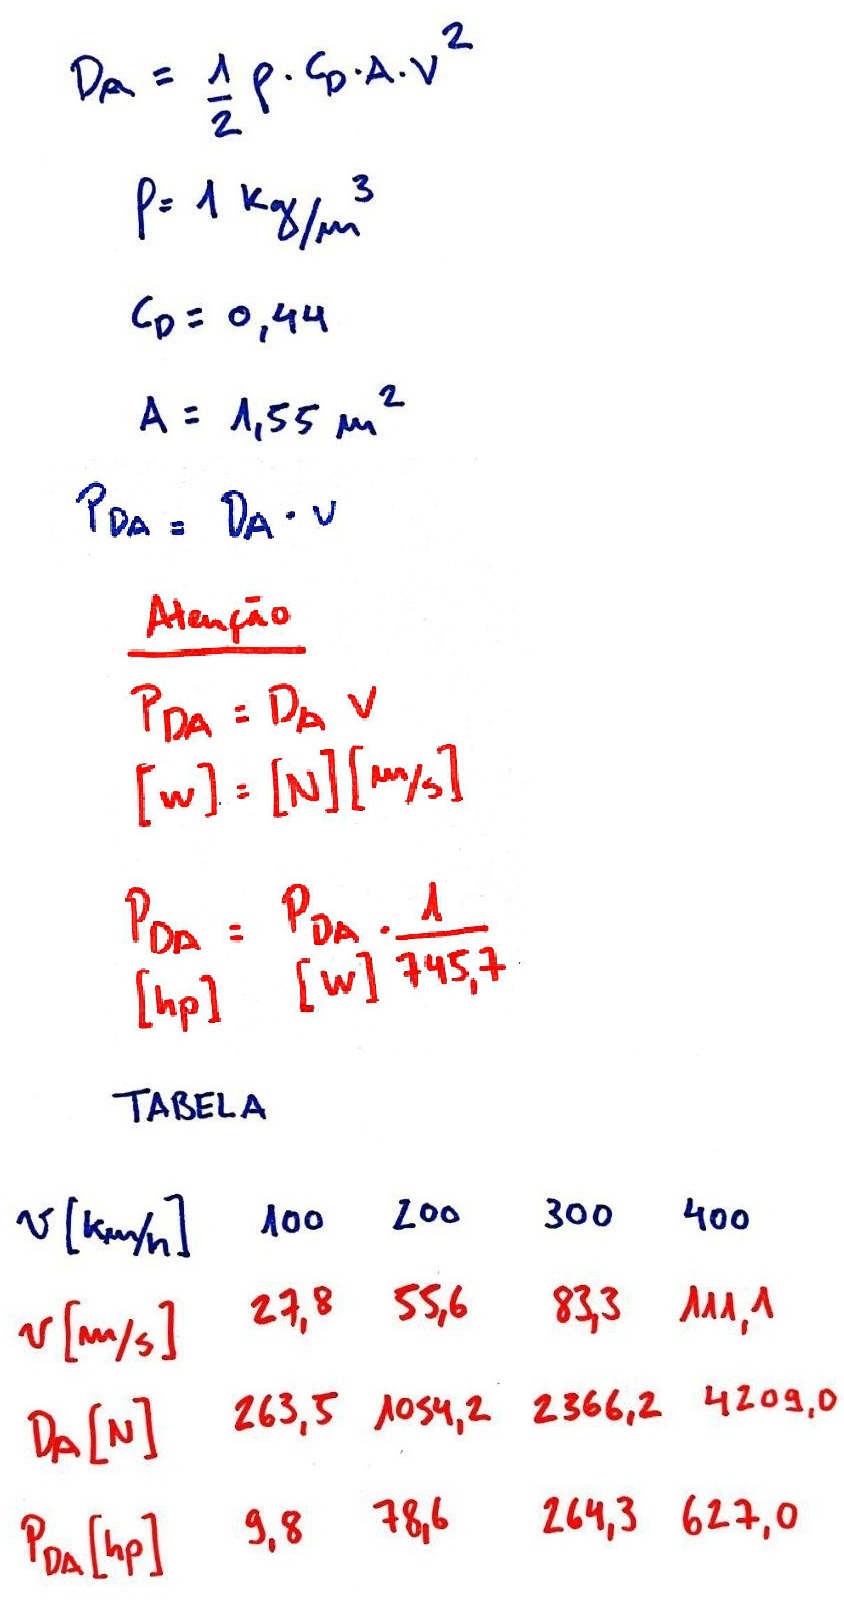 D_A = 1/2 ρ · C_D · A · V²
ρ = 1 Kg/m³
C_D = 0,44
A = 1,55 m²
P_DA = D_A · V
Atenção
P_DA = D_A V
[W] = [N] [m/s]
P_DA = P_DA · 1/745,7
[hp] [W]
TABELA
v [km/h] 100 200 300 400
v [m/s] 27,8 55,6 83,3 111,1
D_A [N] 263,5 1054,2 2366,2 4209,0
P_DA [hp] 9,8 78,6 264,3 627,0